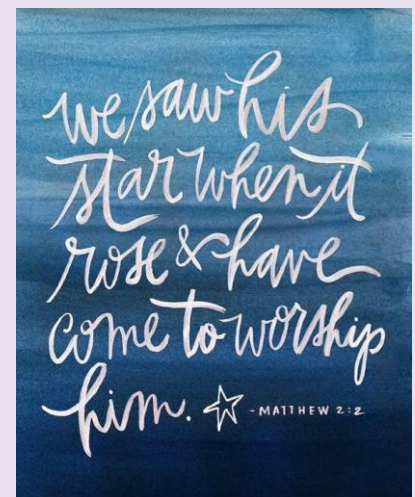 we saw his
star when it
rose & have
come to worship
him. - MATTHEW 2:2